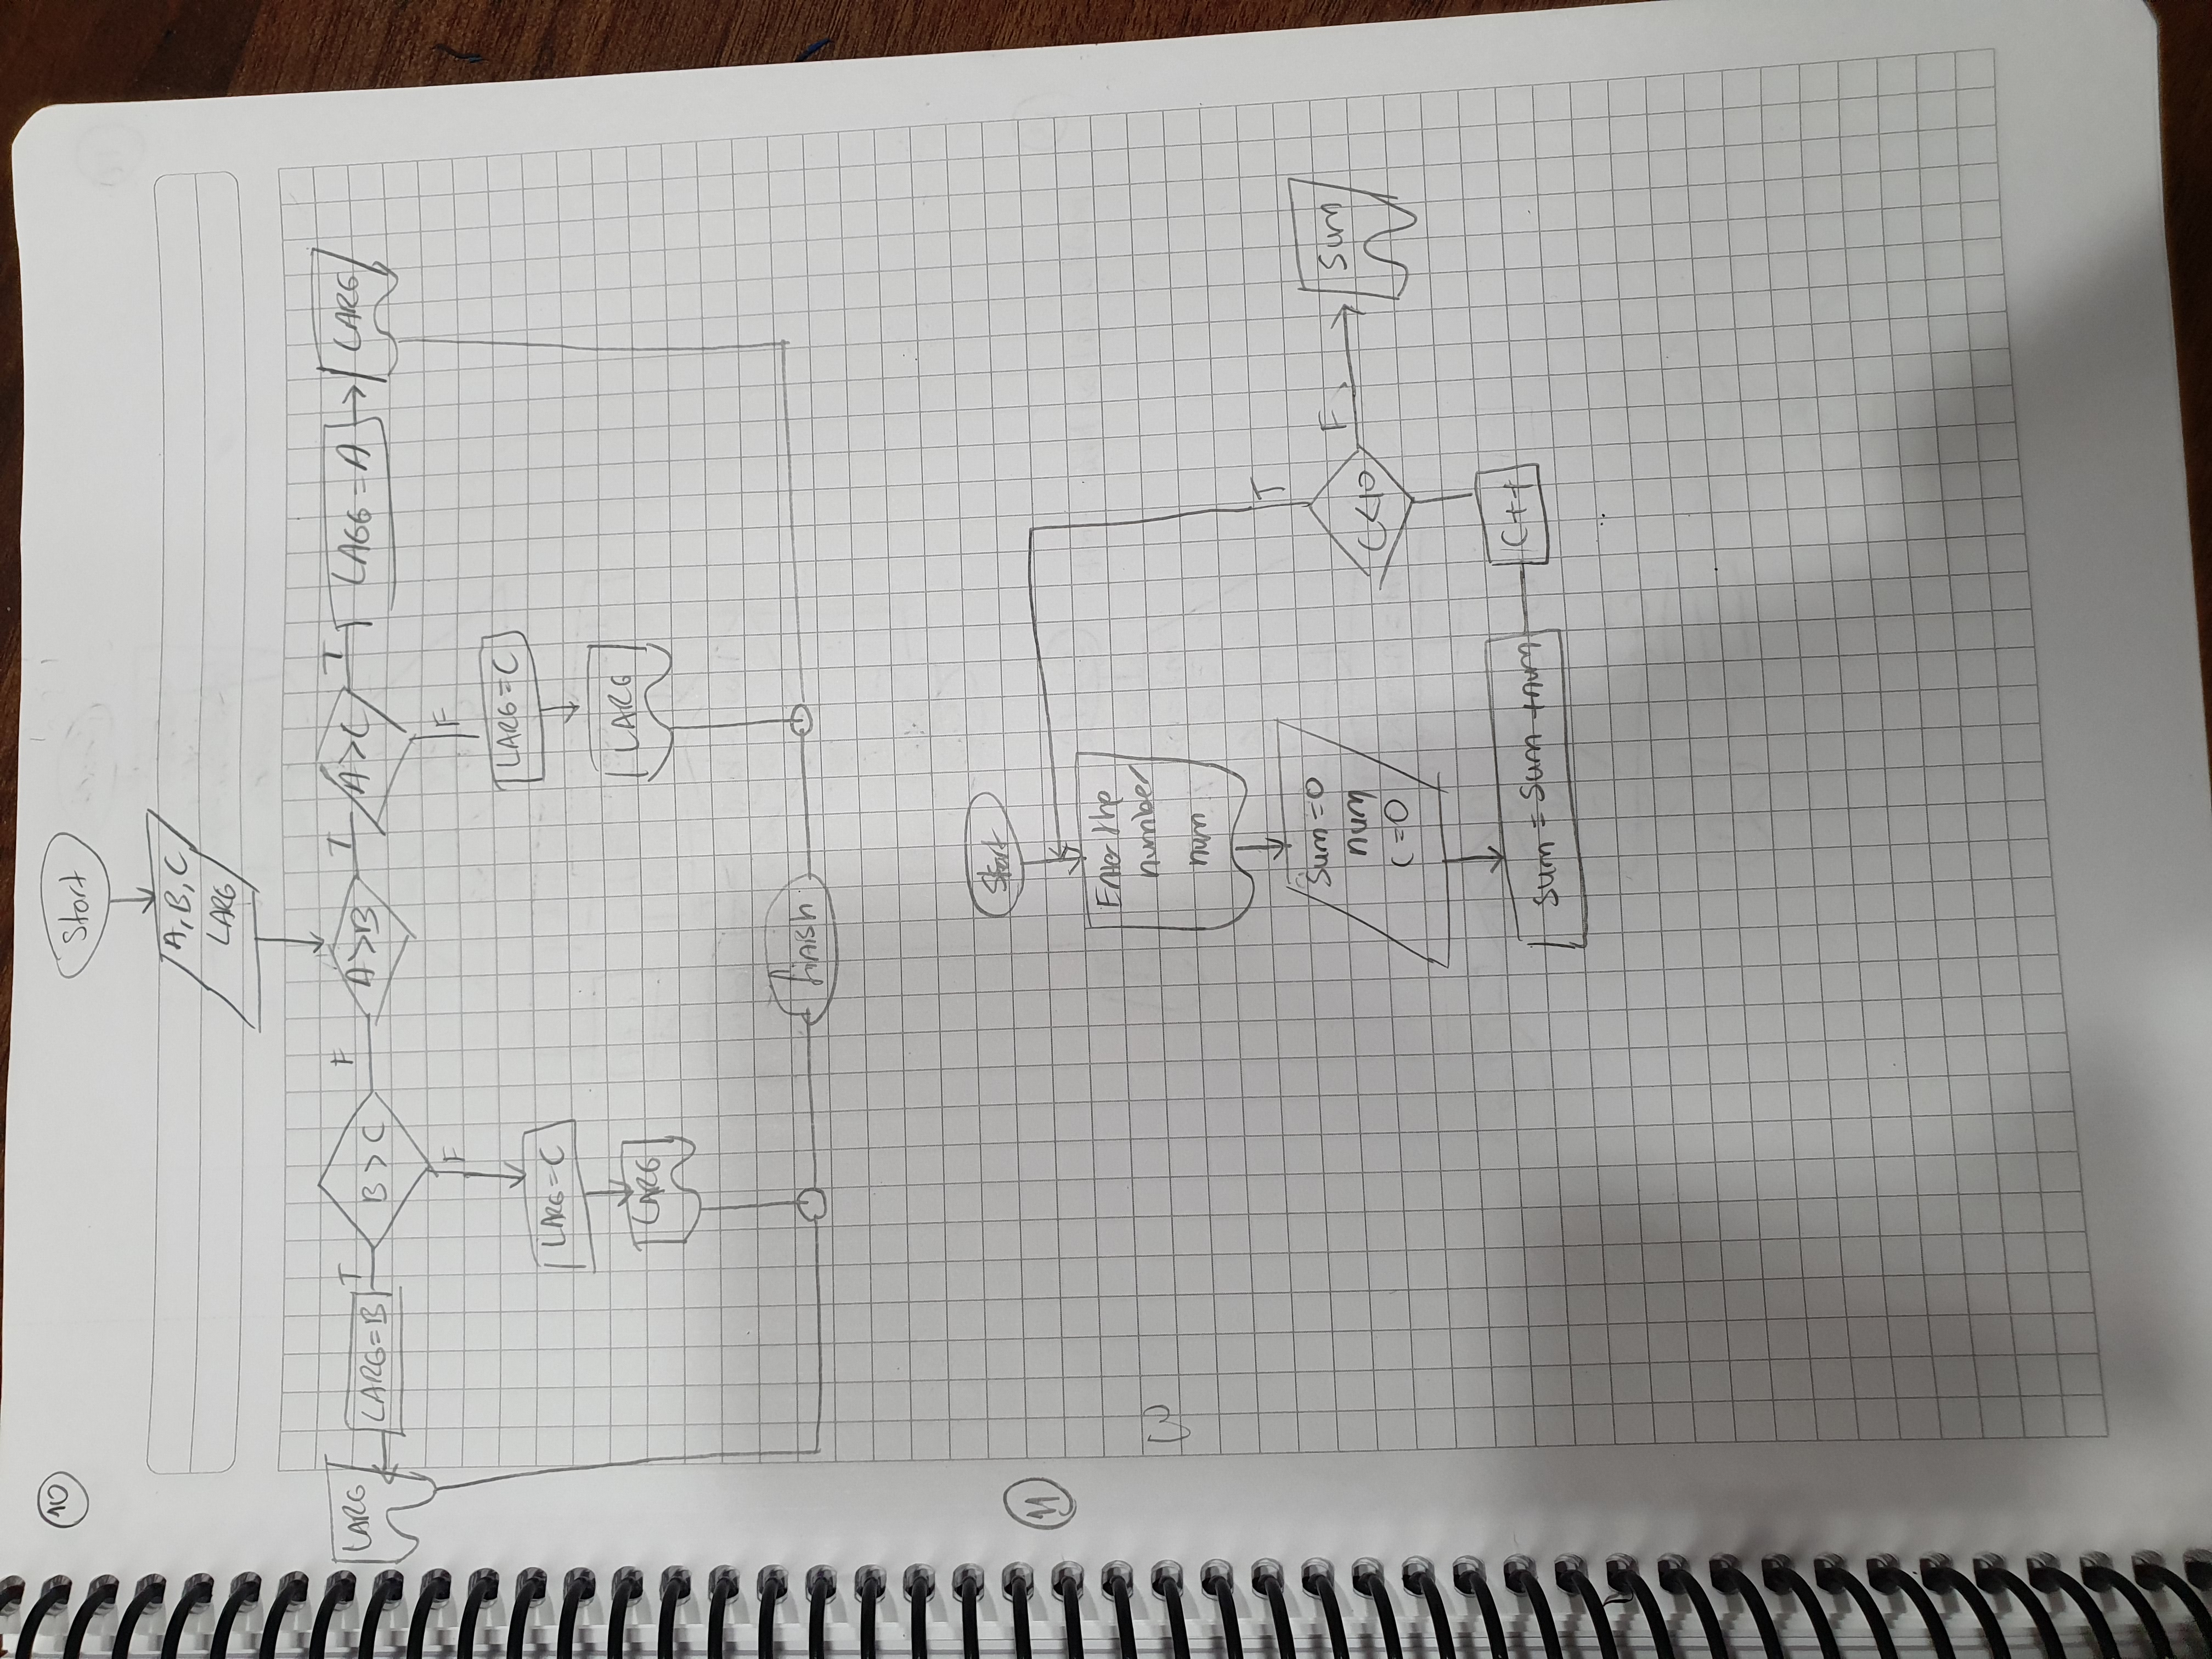 10
Start
A, B, C
LARG
LARG
LARG=B
T
B > C
F
A>B
T
A>C
T
LAGG = A
LARG
F
LARG=C
LARG
F
LARG=C
LARG
finish
11
Start
Enter the
number
num
Sum=0
num
C=0
Sum = Sum +num
C++
C<10
T
F
Sum